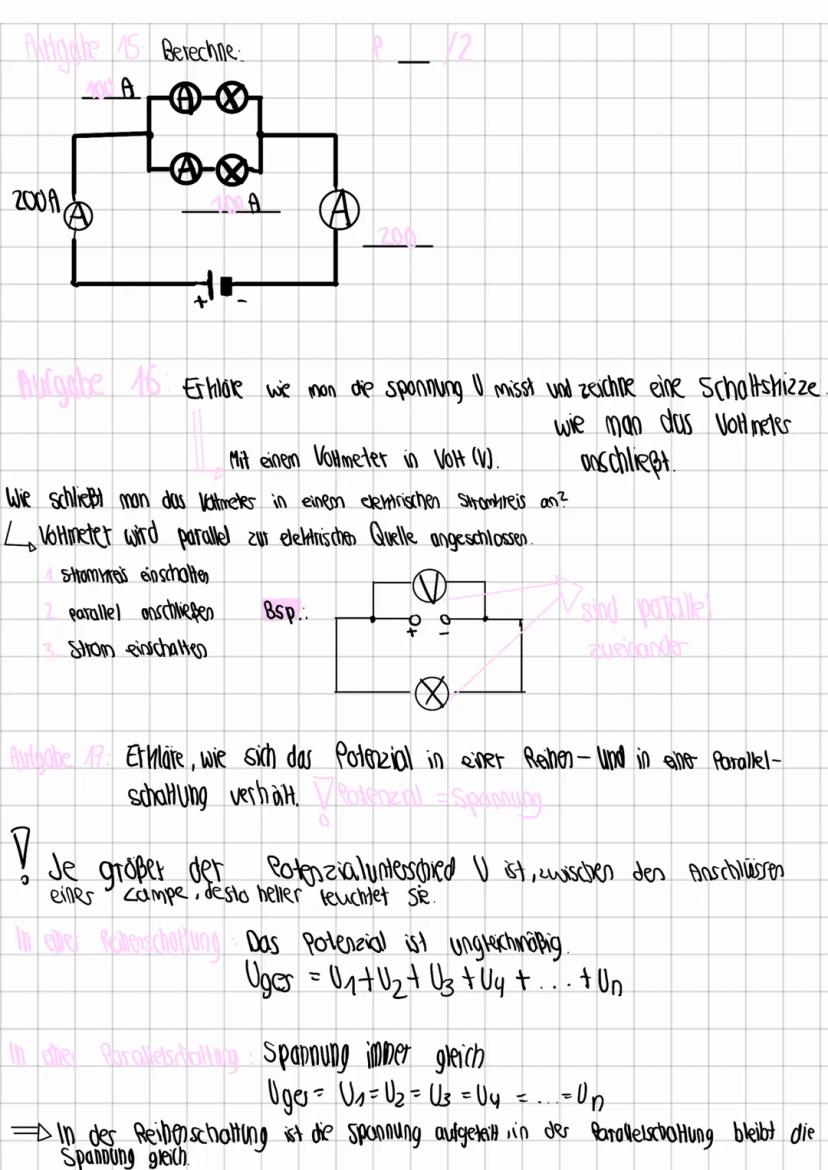 Aufgabe 15: Berechne: P __ /2
100 A
A X
A X
200A A
100 A
A
200
+ -
Aufgabe 16: Erkläre wie man die spannung U misst und zeichne eine Schaltskizze
wie man das Voltmeter
anschließt.
Mit einem Voltmeter in Volt (V).
Wie schließt man das Voltmeter in einem elektrischen Stromkreis an?
Voltmeter wird parallel zur elektrischen Quelle angeschlossen.
1. Stromkreis einschalten
2. parallel anschließen
3. Strom einschalten
Bsp.:
V
+ -
X
sind parallel
zueinander
Aufgabe 17: Erkläre, wie sich das Potenzial in einer Reihen- und in einer Parallel-
schaltung verhält. ! Potenzial = Spannung
! Je größer der Potenzialunterschied U ist, zwischen den Anschlüssen
einer Lampe, desto heller leuchtet sie.
In einer Reihenschaltung: Das Potenzial ist ungleichmäßig.
Uges = U1+U2+U3+U4+...+Un
In einer Parallelschaltung: Spannung immer gleich
Uges = U1=U2=U3=U4=...=Un
⇒ In der Reihenschaltung ist die Spannung aufgeteilt, in der Parallelschaltung bleibt die
Spannung gleich.